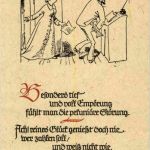 Besonders tief
und voll Empörung
fühlt man die pekuniäre Störung.
Ach! reines Glück genießt doch nie,
wer zahlen soll
und weiß nicht wie.